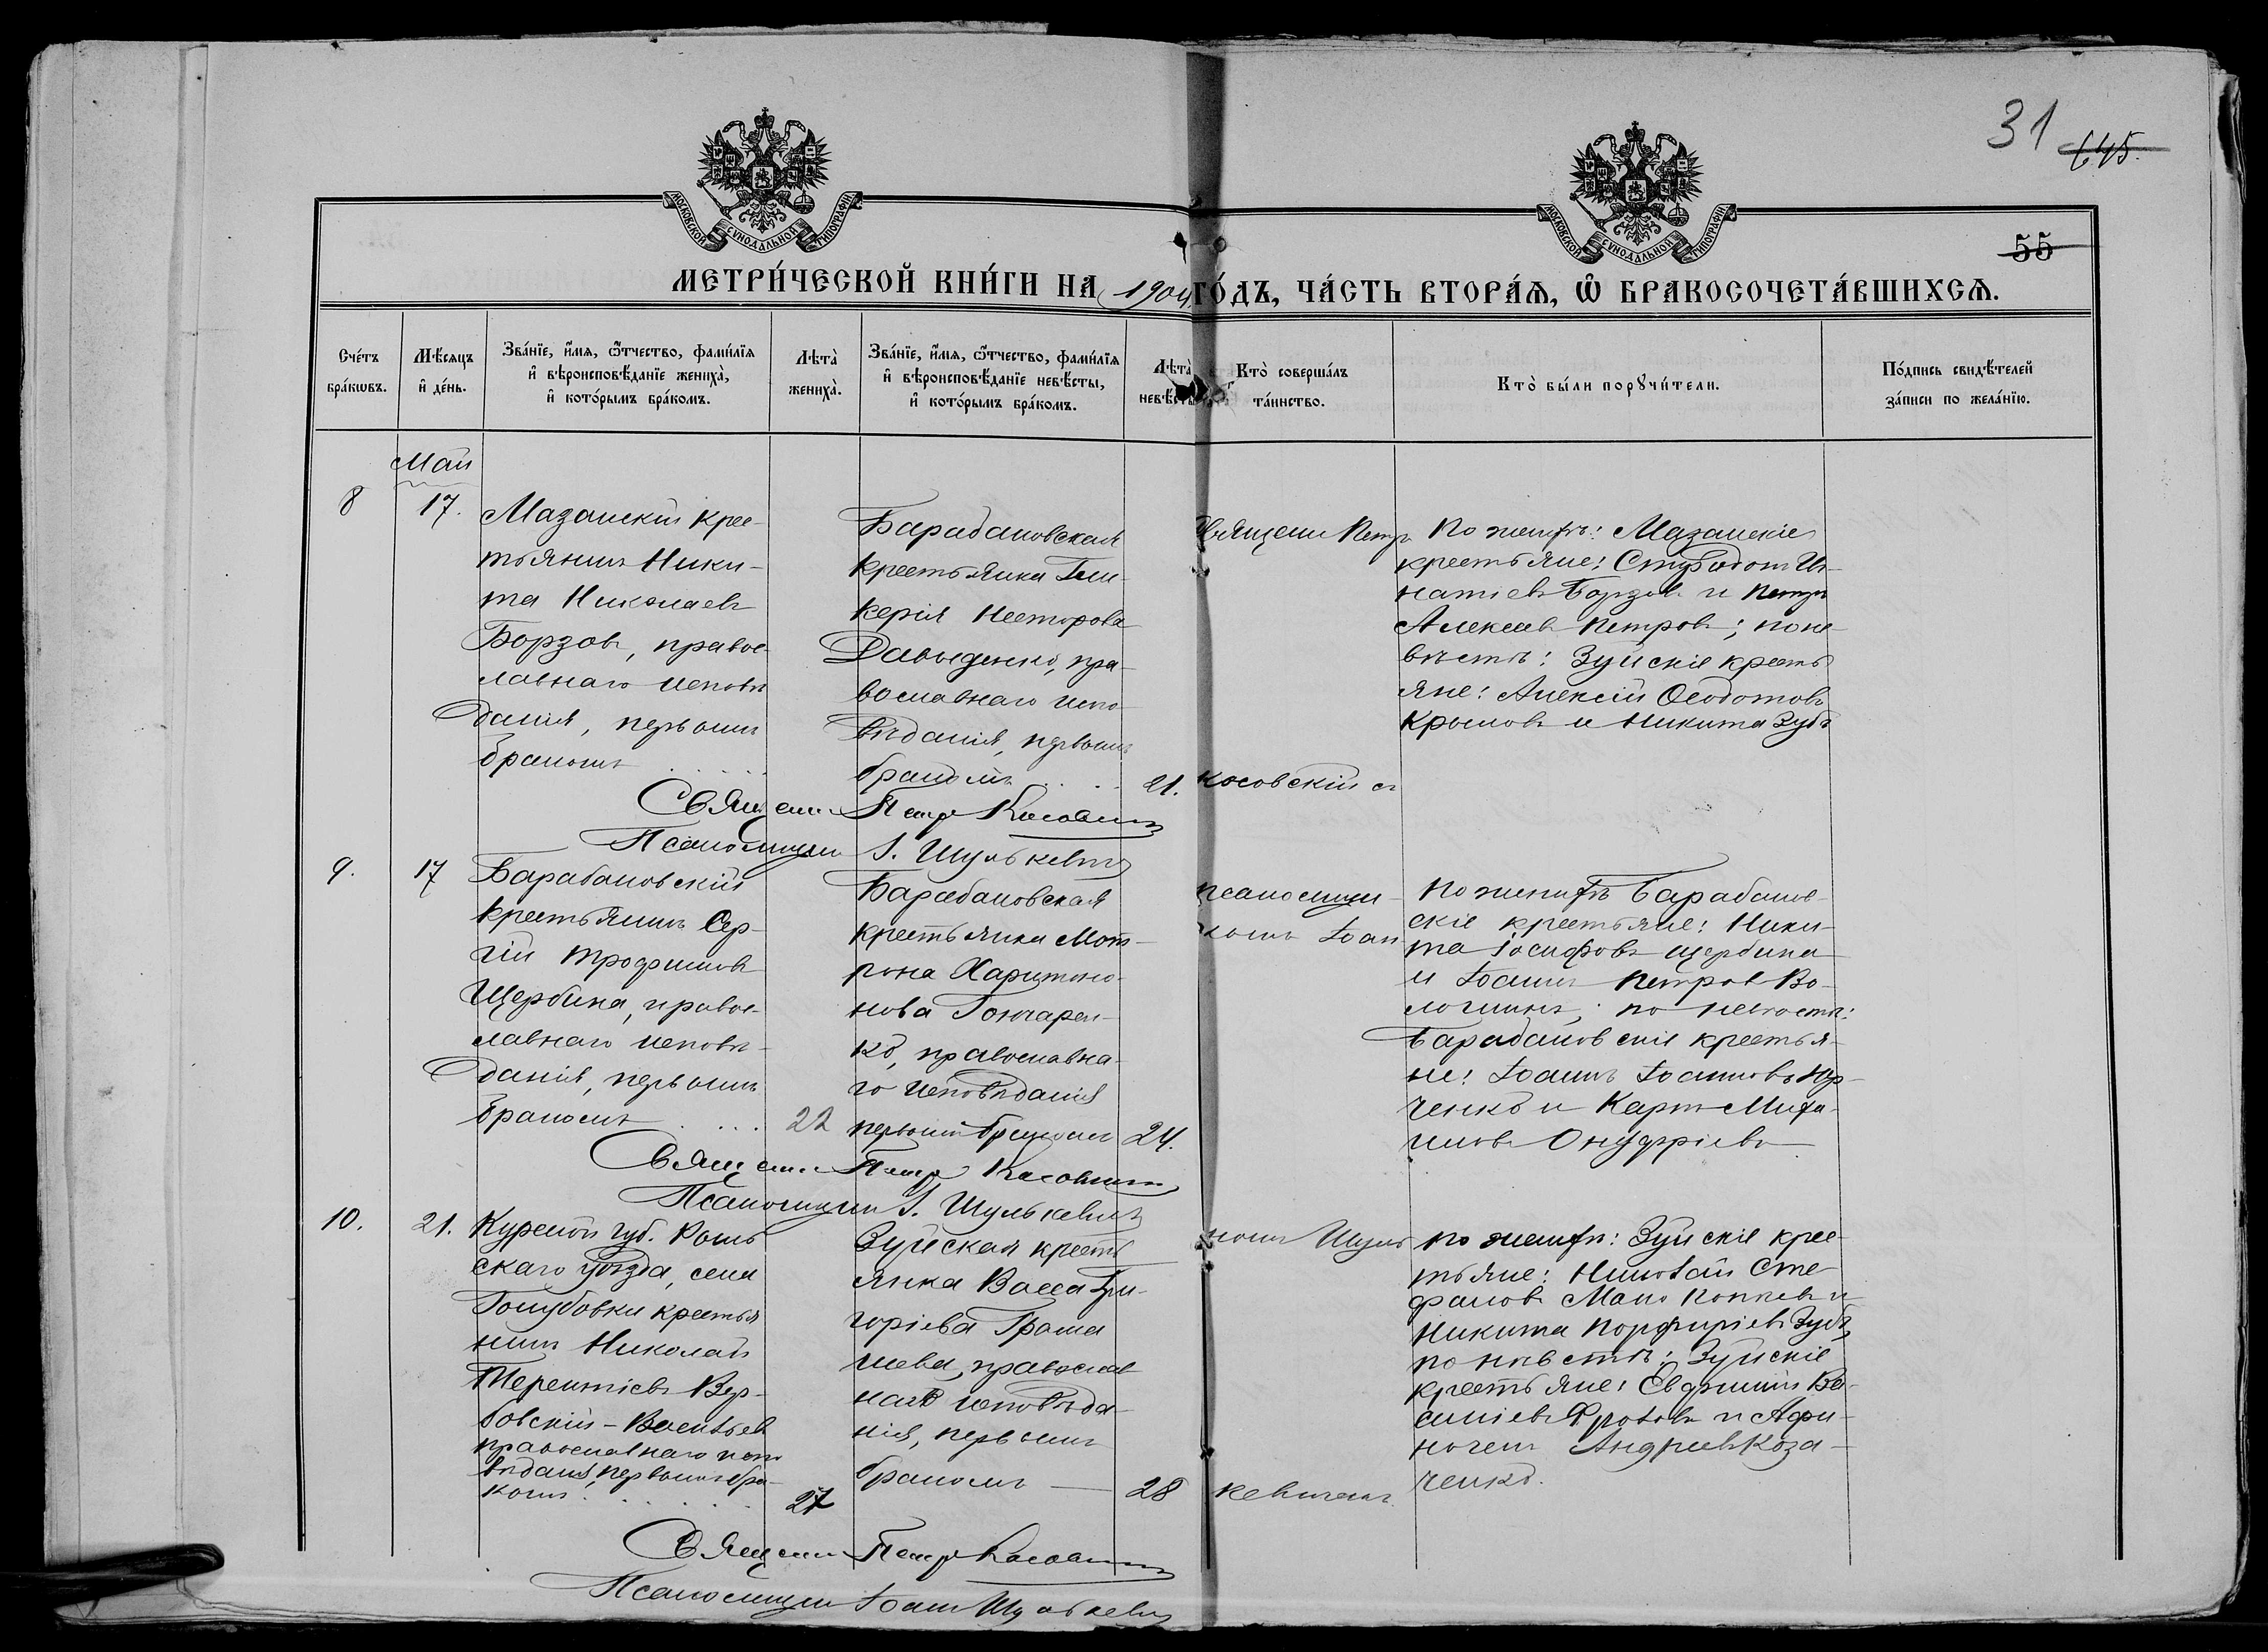 31
645.
МОСКОВСКОЙ СѴНОДАЛЬНОЙ ТИПОГРАФІИ
МОСКОВСКОЙ СѴНОДАЛЬНОЙ ТИПОГРАФІИ
55
МЕТРИ́ЧЕСКОЙ КНИ́ГИ НА 1904 ГО́ДЪ, ЧА́СТЬ ВТОРА́Ѧ, Ѽ БРАКОСОЧЕТА́ВШИХСѦ.
Сче́тъ бра́кѡвъ.
Мѣ́сяцъ и҆ де́нь.
Зва́нїе, и҆́мѧ, ѻ҆́тчество, фами́лїѧ и҆ вѣроисповѣ́данїе жениха̀, и҆ кото́рымъ бра́комъ.
Лѣта̀ жениха̀.
Зва́нїе, и҆́мѧ, ѻ҆́тчество, фами́лїѧ и҆ вѣроисповѣ́данїе невѣ́сты, и҆ кото́рымъ бра́комъ.
Лѣта̀ невѣ́сты.
Кто̀ соверша́лъ та́инство.
Кто̀ бы́ли порꙋчи́тели.
По́дпись свидѣ́телей за́писи по жела́нїю.
Май
8
17.
Мазанскій крес-
тьянинъ Ники-
та Николаевъ
Борзовъ, правос-
лавнаго исповѣ
данія, первымъ
бракомъ . . . . .
Барабановская
крестьянка Гли-
керія Несторова
Давыденко, пра-
вославнаго испо
вѣданія, первымъ
бракомъ . . . .
21.
Священн Петръ
Косовскій съ
По женихѣ: Мазанскіе
крестьяне: Иг-
натіевъ Борзовъ и Петръ
Алексѣевъ Петровъ; по не-
вѣстѣ: Зуйскіе кресть
яне: Алексій Ѳеодотовъ
Крыловъ и Никита Зубъ
Священн Петръ Косовскій
Псаломщикъ І. Шулькевичъ
9.
17
Барабановскій
крестьянинъ Сер-
гій Трофимовъ
Щербина, правос-
лавнаго исповѣ-
данія, первымъ
бракомъ . . . .
22
Барабановская
крестьянка Мот-
рона Харитоно-
нова Гончарен-
ко, православна-
го исповѣданія
первымъ бракомъ
24.
псаломщи-
комъ Іоан
По женихѣ Барабанов-
скіе крестьяне: Ники-
та Іосифовъ Щербина
и Іоаннъ Петровъ Во-
лошинъ; по невѣстѣ:
Барабановскіе крестья-
не: Іоаннъ Іоанновъ Юр-
ченко и Карпъ Миха-
иловъ Онуфріевъ
Священн Петръ Косовскій
Псаломщикъ І. Шулькевичъ
10.
21.
Курской губ. Рыль
скаго уѣзда, села
Голубовки крестья
нинъ Николай
Терентіевъ Вер-
бовскій-Васильев
православнаго испо
вѣданія, первымъ бра-
комъ . . . . .
27
Зуйская кресть
янка Васса Гри-
горіева Грама
шева, православ
наго исповѣда-
нія, первымъ
бракомъ —
28
номъ Шуль
кевичемъ.
по женихѣ: Зуйскіе крес-
тьяне: Николай Сте-
фановъ и
Никита Порфиріевъ Зубъ,
по невѣстѣ: Зуйскіе
крестьяне: Евфимій Ва-
силіевъ Фроловъ и Афи-
ногенъ Андреевъ Коза-
ченко.
Священн Петръ Косовскій
Псаломщикъ Іоаннъ Шулькевичъ